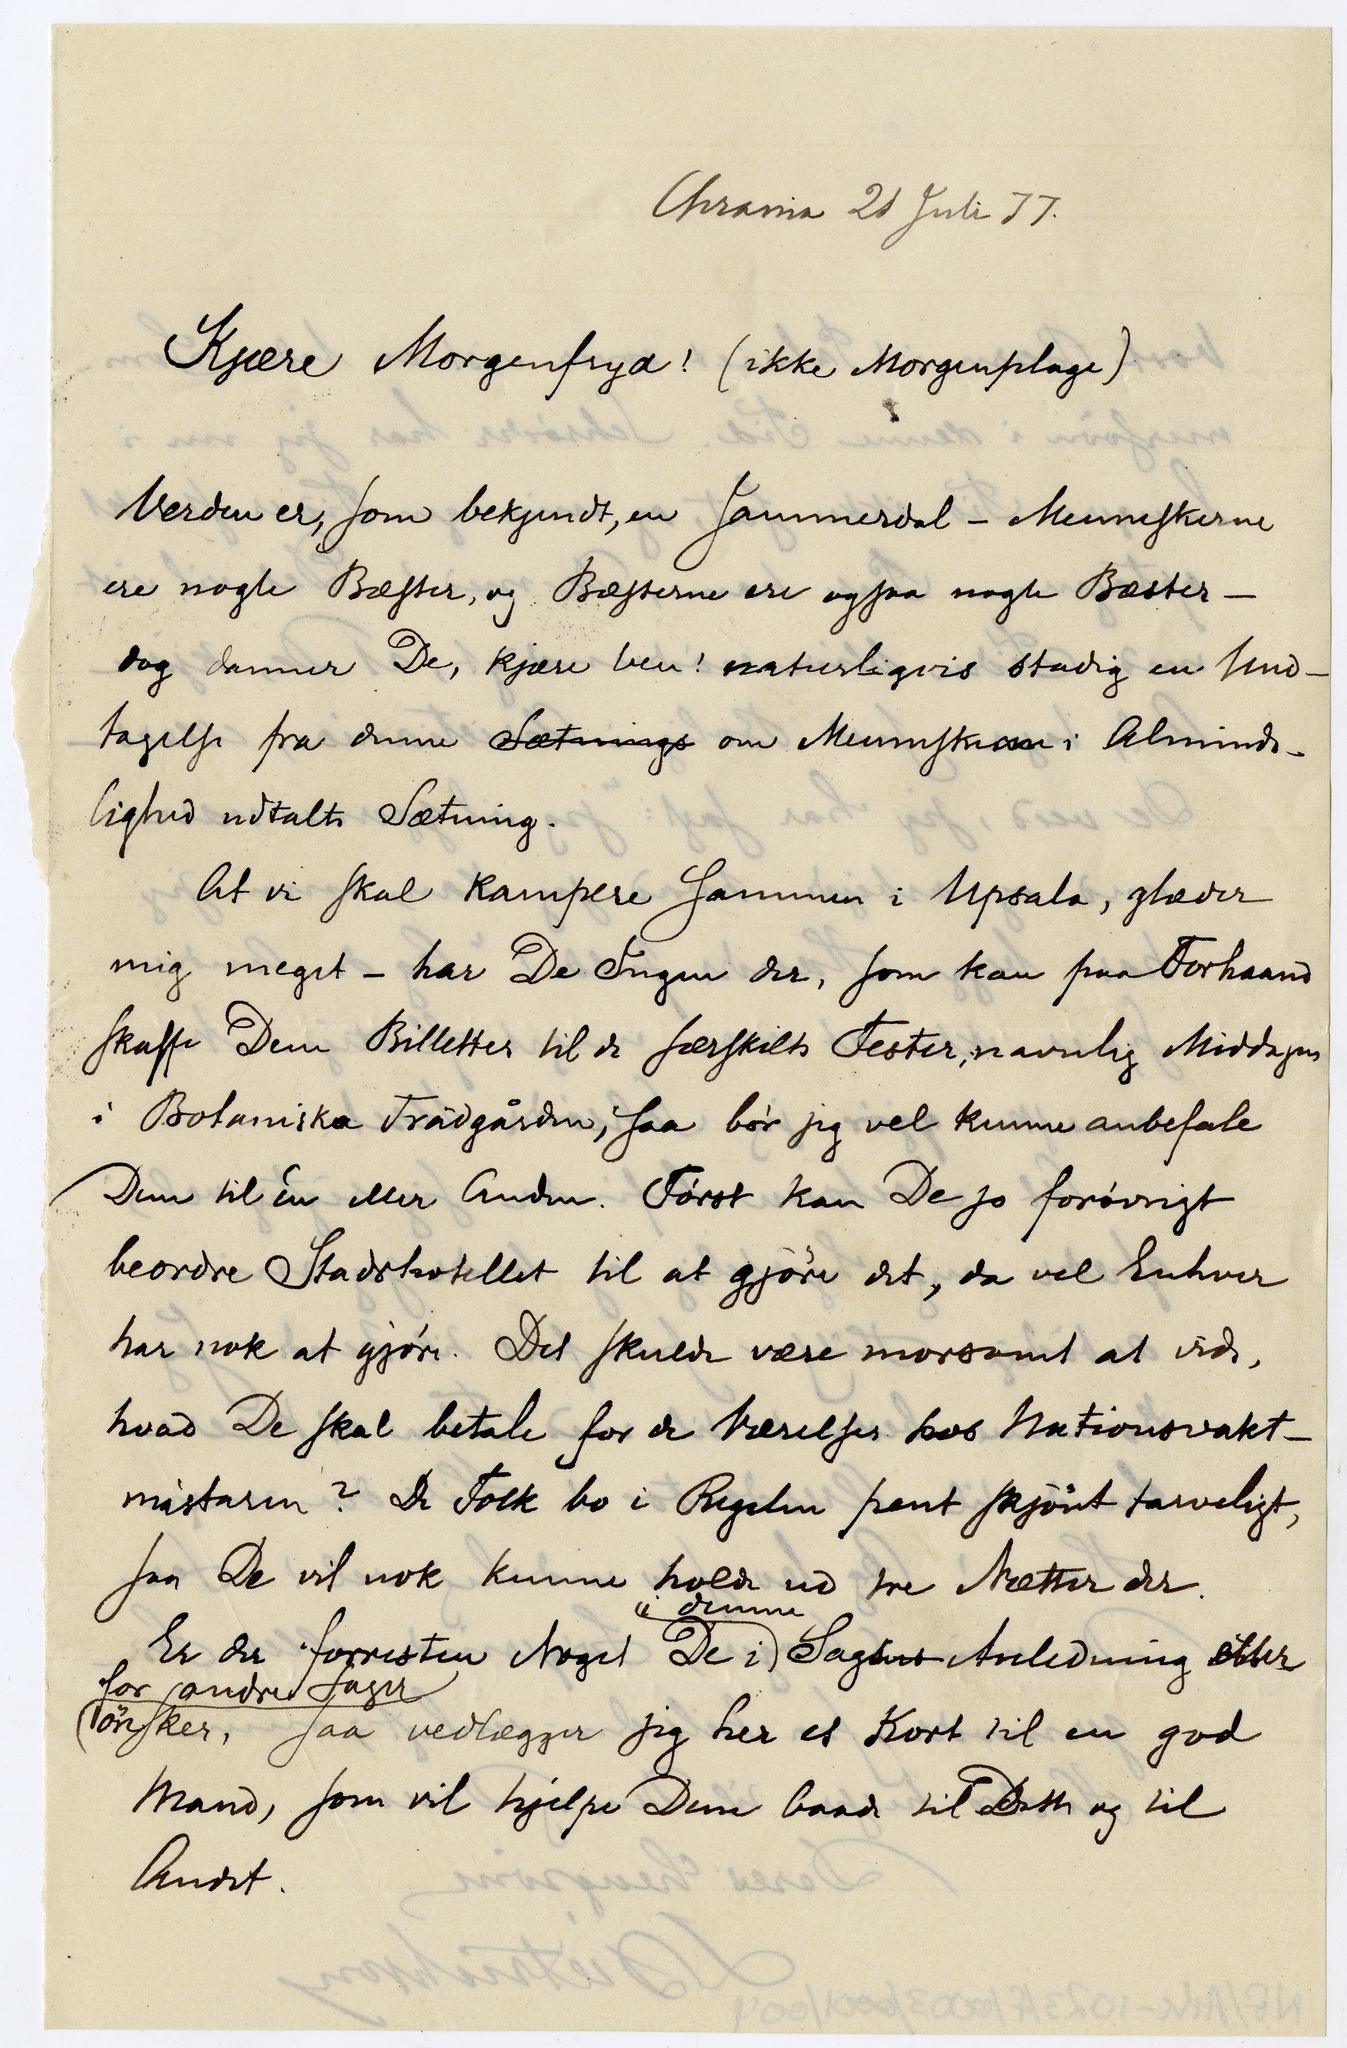 Chrania 21 Juli 77.
Kjære Morgenfryd! (ikke Morgenplage)
Verden er, som bekjendt, en Jammerdal – Menneskerne
ere nogle Bæster, og Bæsterne ere ogsaa nogle Bæster –
dog danner De, kjære Ven! naturligvis stadig en Und-
tagelse fra denne Sætnings om Menneskene i Alminde-
lighed udtalte Sætning.
At vi skal kampere sammen i Upsala, glæder
mig meget – har De Ingen der, som kan paa Forhaand
skaffe Dem Billetter til de særskilte Fester, navnlig Middagen
i Botaniska Trädgården, saa bör jeg vel kunne anbefale
Dem til én eller Anden. Först kan De jo forövrigt
beordre Stadshotellet til at gjöre det, da vel Enhver
har nok at gjöre. Det skulde være morsomt at vide,
hvad De skal betale for de Værelser hos Nationsvakt-
mästaren? De Folk bo i Regelen pent skjönt tarveligt,
saa De vil nok kunne holde ud tre Nætter der.
i denne
Er der forresten Noget De i Sagens Anledning eller
for andre Sager
önsker, saa vedlægger jeg her et Kort til en god
Mand, som vil hjelpe Dem baade til Dette og til
Andet.